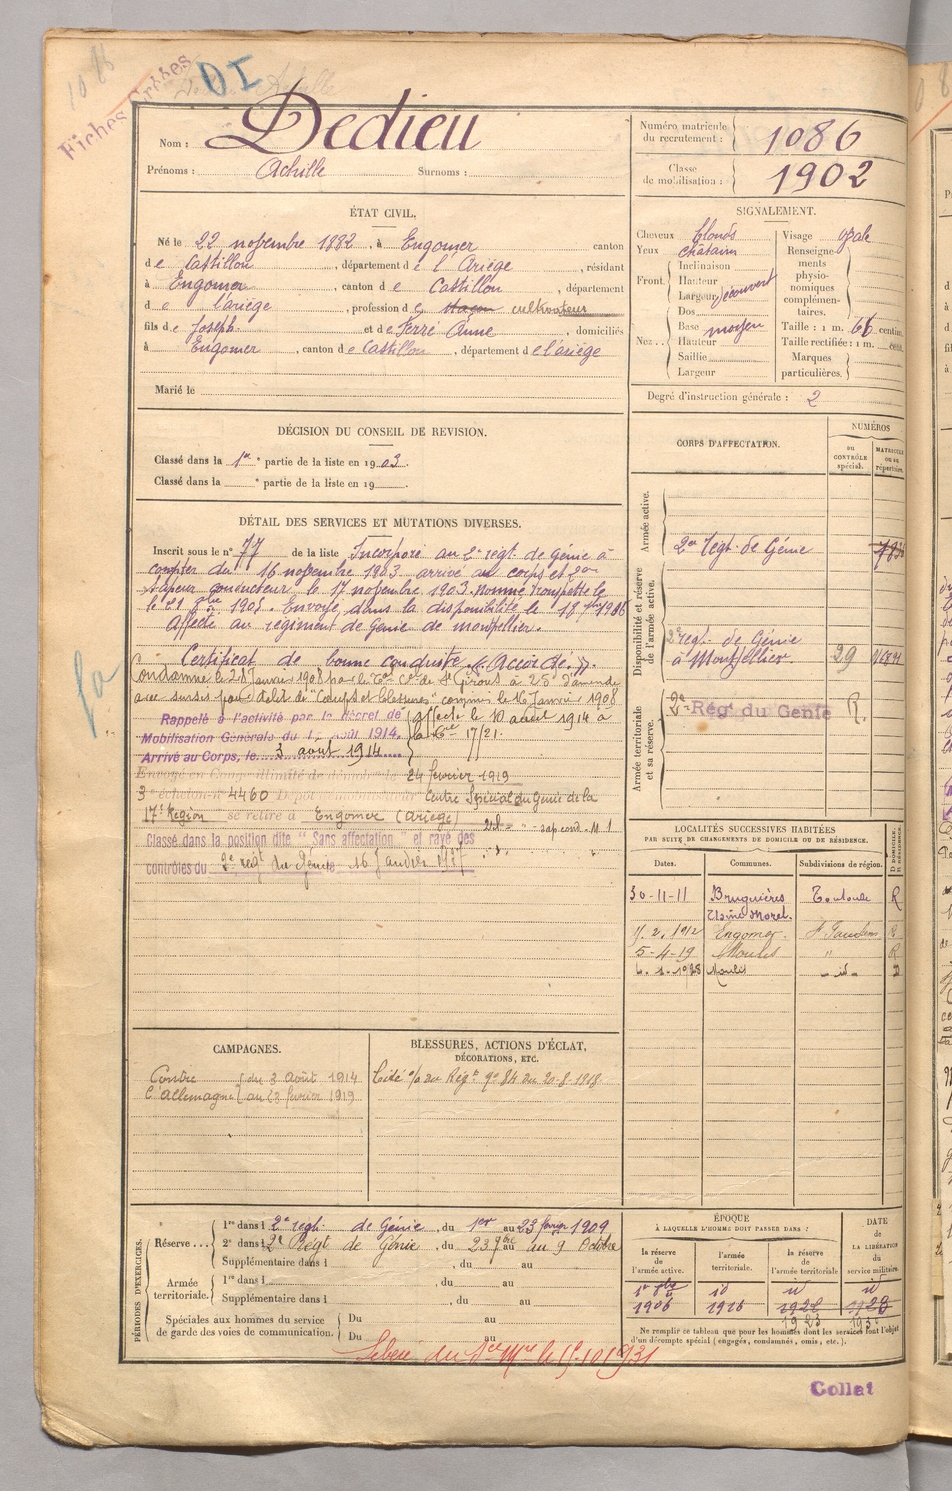 Fiches Créées
DI
Nom : Dedieu
Prénoms : Achille Surnoms :
Numéro matricule du recrutement : 1086
Classe de mobilisation : 1902
ÉTAT CIVIL.
Né le 22 novembre 1882, à Engomer canton
de Castillon, département de l'Ariège, résidant
à Engomer, canton de Castillon, département
de l'ariège, profession de cultivateur
fils de Joseph et de Ferré Anne, domiciliés
à Engomer, canton de Castillon, département de l'ariège
Marié le
SIGNALEMENT.
Cheveux blonds Visage ovale
Yeux châtain
Front Inclinaison
Hauteur
Largeur découvert
Nez Dos
Base moyen
Hauteur
Saillie
Largeur
Renseignements physionomiques complémentaires.
Taille : 1 m. 66 centim.
Taille rectifiée : 1 m. centim.
Marques particulières.
Degré d'instruction générale : 2
DÉCISION DU CONSEIL DE REVISION.
Classé dans la 1re partie de la liste en 1903.
Classé dans la e partie de la liste en 19
CORPS D'AFFECTATION.
NUMÉROS
DU CONTRÔLE spécial.
MATRICULE OU AU répertoire.
Armée active.
2me régt. de Génie
Disponibilité et réserve de l'armée active.
2e régt. de Génie
à Montpellier 29
Armée territoriale et sa réserve.
2e Rég. du Génie R.
DÉTAIL DES SERVICES ET MUTATIONS DIVERSES.
Inscrit sous le n° 77 de la liste Incorporé au 2e régt. de génie à
compter du 16 novembre 1903 arrivé au corps et
sapeur conducteur le 17 novembre 1903. nommé trompette le
le 21 1905. Envoyé dans la disponibilité le 18 1906
Affecté au régiment de Génie de montpellier.
Certificat de bonne conduite « Accordé. »
Condamné le 28 Janvier 1908 par le de St Girons à 25 d'amende
avec sursis pour délit de "Coups et blessures" commis le 16 Janvier 1908
Rappelé à l'activité par le décret de
Mobilisation Générale du 1er Août 1914.
Arrivé au Corps, le 3 août 1914
affecté le 10 août 1914 à
la Cie 17/21.
Envoyé en Congé illimité de démob. le 24 février 1919
3e échelon n° 4460 Dépôt démobilisateur Centre Spécial du Génie de la
17e Région se retire à Engomer (Ariège)
Classé dans la position dite "Sans affectation" et rayé des
contrôles du 2e régt du Génie
LOCALITÉS SUCCESSIVES HABITÉES
PAR SUITE DE CHANGEMENTS DE DOMICILE OU DE RÉSIDENCE.
Dates. Communes. Subdivisions de région. D DOMICILE. R RÉSIDENCE.
30-11-11 Bruguières Toulouse R
2. 1912 Engomer. St Gaudens R
5-4-19 Moulis " R
1928 Moulis - id - D
CAMPAGNES.
Contre l'Allemagne du 3 août 1914
au 23 février 1919
BLESSURES, ACTIONS D'ÉCLAT,
DÉCORATIONS, ETC.
Cité o/ du Régt n° 84 du 20-8-1918
PÉRIODES D'EXERCICES.
Réserve
1re dans l 2e régt. de Génie, du 1er au 23 février 1909
2e dans l 2e Régt de Génie, du 23 au au 9 Octobre
Supplémentaire dans l , du au
Armée territoriale.
1re dans l , du au
Supplémentaire dans l , du au
Spéciales aux hommes du service
de garde des voies de communication.
Du au
Du au
ÉPOQUE
À LAQUELLE L'HOMME DOIT PASSER DANS :
la réserve de l'armée active.
l'armée territoriale.
la réserve de l'armée territoriale
DATE DE LA LIBÉRATION du service militaire.
1906 1916 1922 1928
1923
Ne remplir ce tableau que pour les hommes dont les services font l'objet
d'un décompte spécial (engagés, condamnés, omis, etc.).
Libéré du Sce Mre le 15-10 1931
Collat